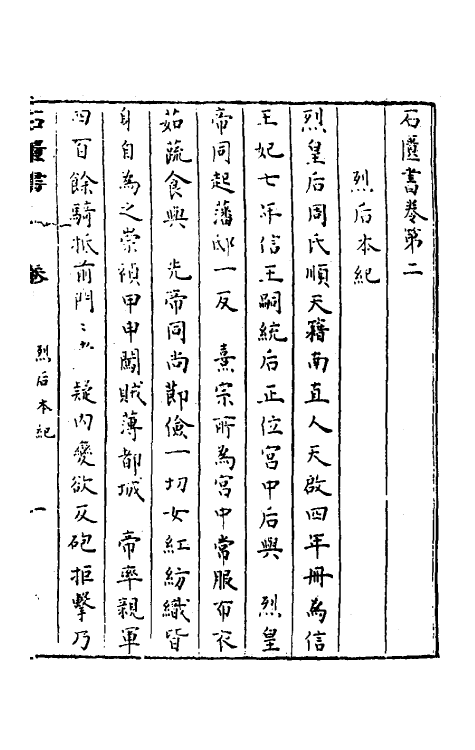 石匱書卷第二
烈后本紀
烈皇后周氏順天籍南直人天啟四年冊為信
王妃七年信王嗣統后正位宮中后與 烈皇
帝同起藩邸一反 熹宗所為宮中常服布衣
茹蔬食與 先帝同尚節儉一切女紅紡織皆
身自為之崇禎甲申闖賊薄都城 帝率親軍
四百餘騎抵前門門上疑內變欲反砲拒擊乃
石匱書 卷 烈后本紀 一